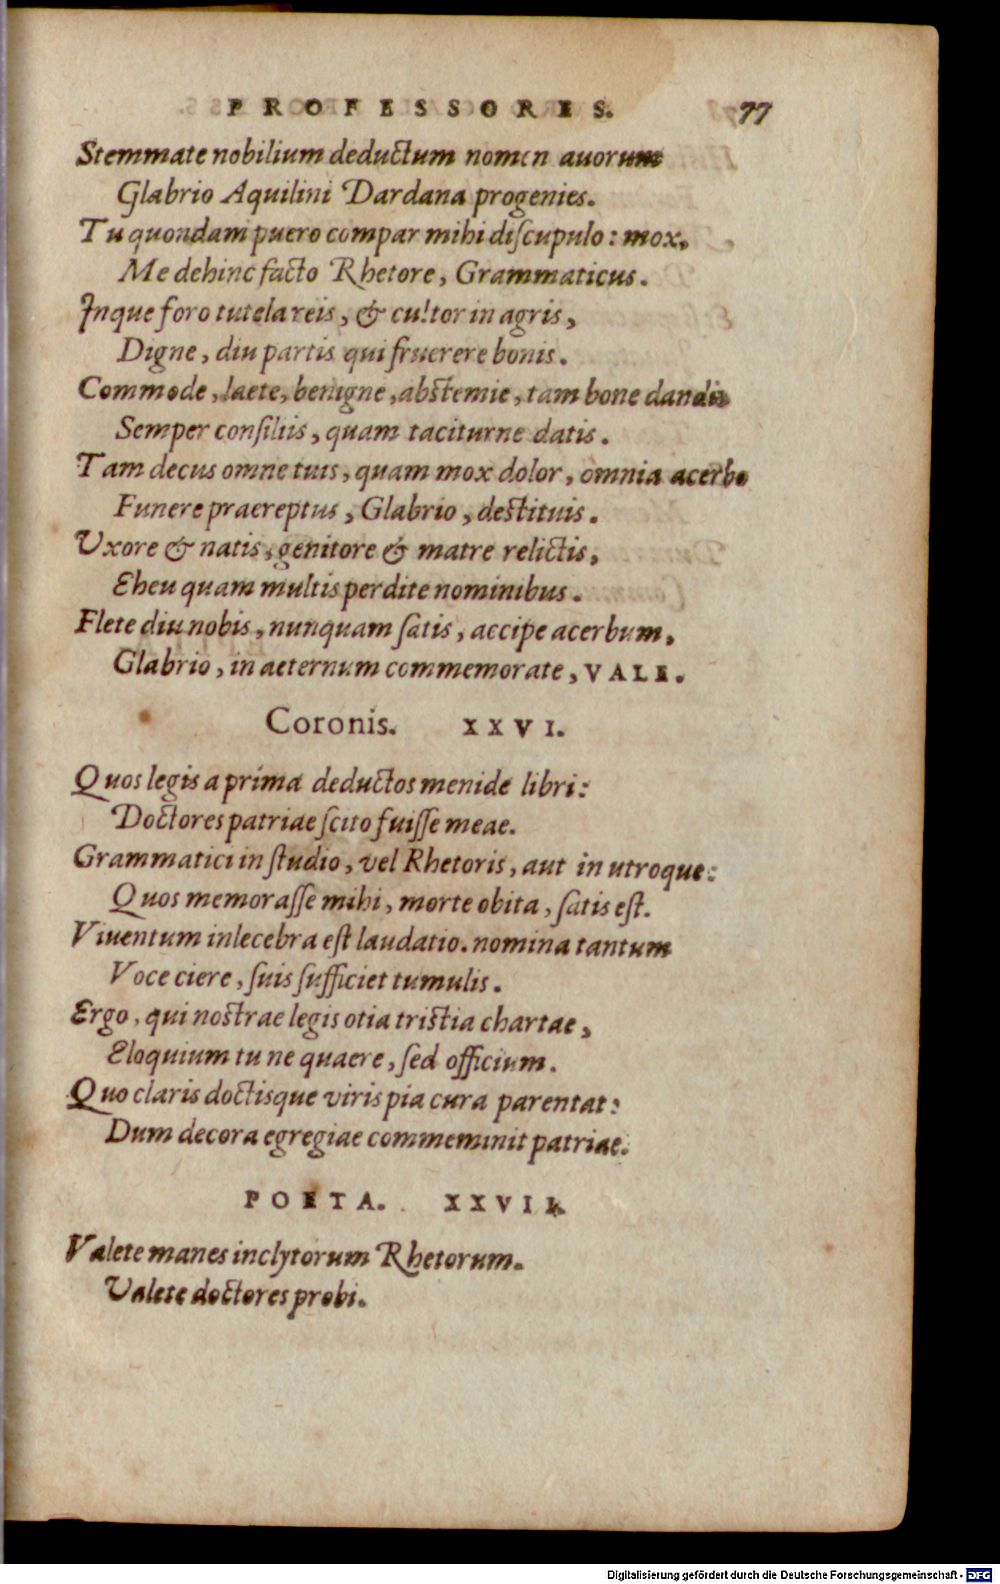 PROFESSORES. 77
Stemmate nobilium deductum nomen auorum
Glabrio Aquilini Dardana progenies.
Tu quondam puero compar mihi discupulo: mox,
Me dehinc facto Rhetore, Grammaticus.
Inque foro tutela reis, & cultor in agris,
Digne, diu partis qui fruerere bonis.
Commode, laete, benigne, abstemie, tam bone dandis
Semper consiliis, quam taciturne datis.
Tam decus omne tuis, quam mox dolor, omnia acerbo
Funere praereptus, Glabrio, destituis.
Uxore & natis, genitore & matre relictis,
Eheu quam multis perdite nominibus.
Flete diu nobis, nunquam satis, accipe acerbum,
Glabrio, in aeternum commemorate, VALE.
Coronis. XXVI.
Quos legis a prima deductos menide libri:
Doctores patriae scito fuisse meae.
Grammatici in studio, vel Rhetoris, aut in utroque:
Quos memorasse mihi, morte obita, satis est.
Viuentum inlecebra est laudatio. nomina tantum
Voce ciere, suis sufficiet tumulis.
Ergo, qui nostrae legis otia tristia chartae,
Eloquium tu ne quaere, sed officium.
Quo claris doctisque viris pia cura parentat:
Dum decora egregiae commeminit patriae.
POETA. XXVII.
Valete manes inclytorum Rhetorum.
Valete doctores probi.
Digitalisierung gefördert durch die Deutsche Forschungsgemeinschaft - DFG